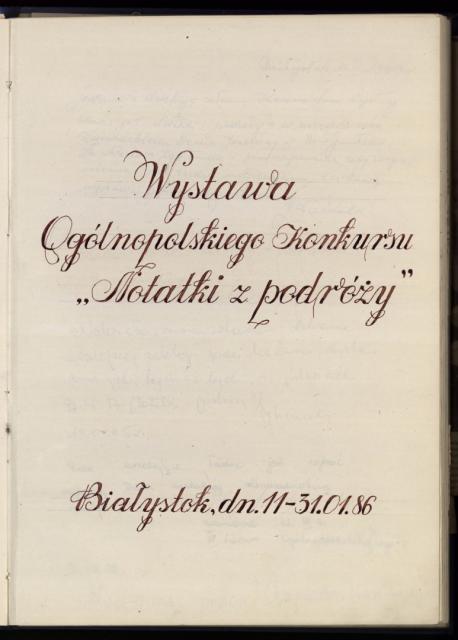 Wystawa
Ogólnopolskiego Konkursu
„Notatki z podróży”
Białystok, dn. 11-31.01.86